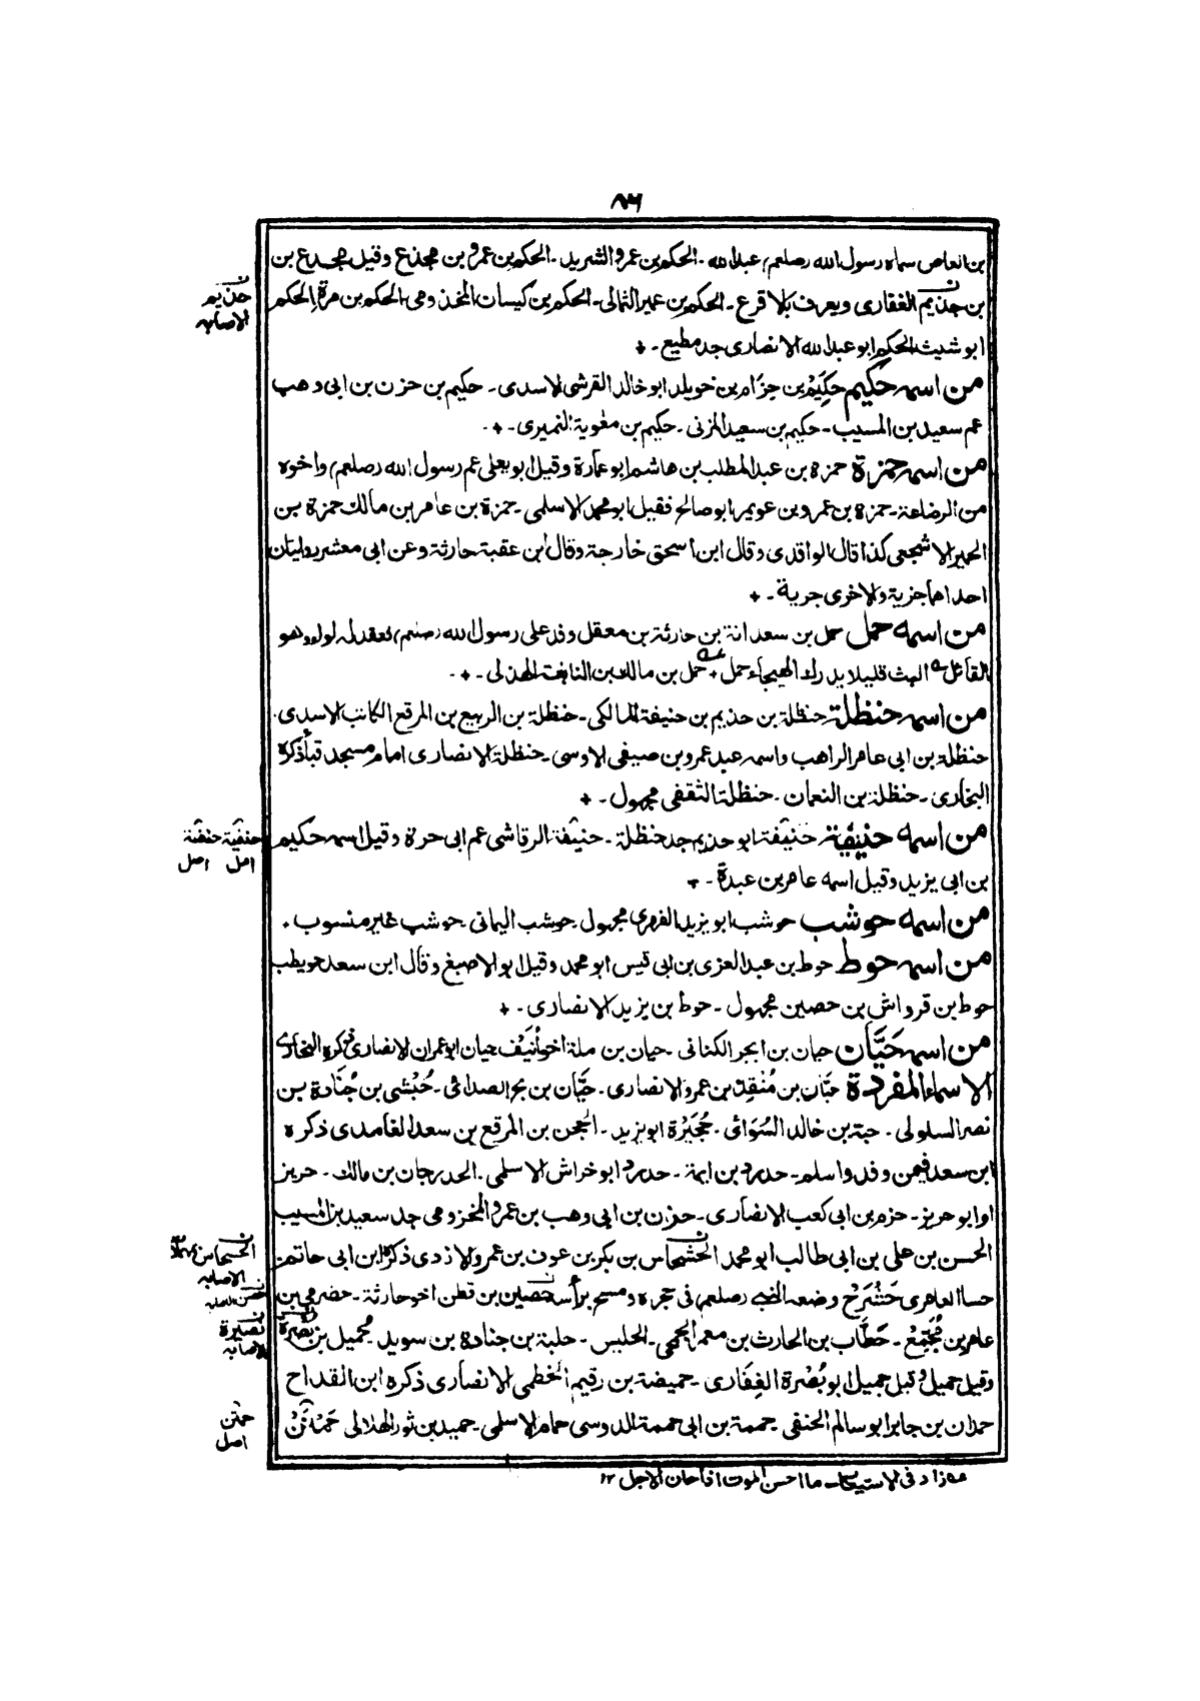 ٨٦
بن العاص سماه رسول الله (صلعم) عبد الله ۔ الحكم بن عمرو الشريد ۔ الحكم بن عمرو بن مجذع وقيل مجدع بن
بن حذيم الغفارى ويعرف بالاقرع ۔ الحكم بن عمير الثمالى ۔ الحكم بن كيسان المخذومى الحكم بن مرة الحكم
حذيم
الاصابه
ابو شيث الحكم ابو عبد الله الانصارى جد مطيع ۔ +
من اسمه حَكيم حكِيَم بن حِزَام بن خويلد ابو خالد القرشى الاسدى ۔ حكيم بن حزن بن ابى وهب
عم سعيد بن المسيب ۔ حكيم بن سعيد المزنى ۔ حكيم بن معٰوية النميرى ۔ +
من اسمه حمزة حمزة بن عبد المطلب بن هاشم ابو عمارة وقيل ابو يعلى عم رسول الله (صلعم) واخوه
من الرضاعة ۔ حمزة بن عمرو بن عويمر ابو صالح فقيل ابو محمد الاسلمى ۔ حمزة بن عامر بن مالك حمزة بن
الحمير الاشجعى كذا قال الواقدى وقال ابن اسحق خارجة وقال ابن عقبة حارثة وعن ابى معشر روايتان
احداهما جزية والاخرى جرية ۔ +
من اسمه حمل حمل بن سعدانة بن حارثة بن معقل وفد على رسول الله (صلعم) فعقد له لواء وهو
القائل البث قليلا يدرك الهيجاء حمل + حمل بن مالك بن النابغة الهذلى ۔ +
من اسمه حنظلة حنظلة بن حذيم بن حنيفة المالكى ۔ حنظلة بن الربيع بن المرقع الكاتب الاسدى
حنظلة بن ابى عامر الراهب واسمه عبد عمرو بن صيفى الاوسى ۔ حنظلة الانصارى امام مسجد قبا ذكره
البخارى ۔ حنظلة بن النعمان ۔ حنظلة الثقفى مجهول ۔ +
من اسمه حنيفة حنيفة ابو حذيم جد حنظلة ۔ حنيفة الرقاشى عم ابى حرة وقيل اسمه حكيم
حنفية حنفة
اصل اصل
بن ابى يزيد وقيل اسمه عامر بن عبدة ۔ +
من اسمه حوشب حوشب ابو يزيد الفهرى مجهول ۔ حوشب اليمانى ۔ حوشب غير منسوب ۔
من اسمه حوط حوط بن عبد العزى بن ابى قيس ابو محمد وقيل ابو الاصبغ وقال ابن سعد حويطب
حوط بن قرواش بن حصين مجهول ۔ حوط بن يزيد الانصارى ۔ +
من اسمه حَيَّان حيان بن ابجر الكنانى ۔ حيان بن ملة اخو أُنَيف حيان ابو عمران الانصارى ذكره البخارى
الاسماء المفردة حَبَّان بن مُنْقِذ بن عمرو الانصارى ۔ حِبَّان بن بح الصدائى ۔ حُبْشى بن جُنَادة بن
نصر السلولى ۔ حبة بن خالد السُوَائى ۔ حُجَيْرة ابو يزيد ۔ الحجن بن المرقع بن سعد الغامدى ذكره
ابن سعد فيمن وفد واسلم ۔ حدرد بن ابمة ۔ حدرد ابو خراش الاسلمى ۔ الحدرجان بن مالك ۔ حريز
او ابو حريز ۔ حزم بن ابى كعب الانصارى ۔ حزن بن ابى وهب بن عمرو المخزومى جد سعيد بن المسيب
الحسن بن على بن ابى طالب ابو محمد الحشحاس بن بكر بن عوف بن عمرو الازدى ذكره ابن ابى حاتم
الحسحاس
الاصابه
حسا العامرى حَشْرَج وضعه النبى (صلعم) فى حجره ومسح برأسه حُصَين بن قطن اخو حارثة ۔ حضرمى بن
عامر بن مُجَمِّع ۔ حَطَّاب بن الحارث بن معمر الجمحى ۔ الحليس ۔ حلبة بن جنادة بن سويد ۔ حُميل بن بَصْرة
نصيرة
الاصابه
وقيل جميل وقيل حميل ابو بُصْرة الغِفَارى ۔ حميضة بن رقيم الخطمى الانصارى ذكره ابن القداح
حمدان بن جابر ابو سالم الحنفى ۔ حممة بن ابى حممة الدوسى حمام الاسلمى ۔ حميد بن ثور الهلالى حَمْنَن
حمنن
اصل
زاد فى الاستيعاب ما احسن الموت اذا حان الاجل ۱۲